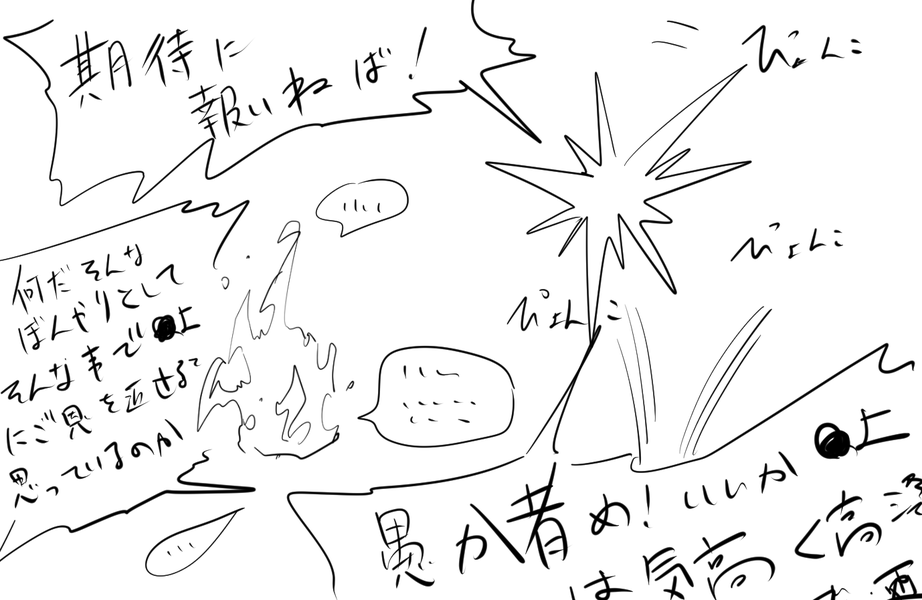 期待に
報いねば！
ぴょんこ
ぴょんこ
ぴょんこ
何だそんな
ぼんやりとして
そんな事で●上
にご恩を返せると
思っているのか
愚か者め！いいか●上
は気高く高潔